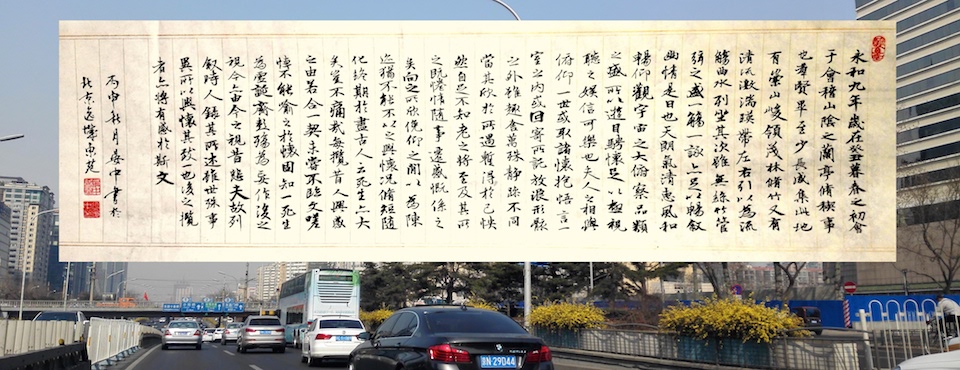 永和九年歲在癸丑暮春之初會
于會稽山陰之蘭亭脩稧事
也羣賢畢至少長咸集此地
有崇山峻領茂林脩竹又有
清流激湍暎帶左右引以為流
觴曲水列坐其次雖無絲竹管
弦之盛一觴一詠亦足以暢敘
幽情是日也天朗氣清惠風和
暢仰觀宇宙之大俯察品類
之盛所以遊目騁懷足以極視
聽之娛信可樂也夫人之相與
俯仰一世或取諸懷抱悟言一
室之內或因寄所託放浪形骸
之外雖趣舍萬殊靜躁不同
當其欣於所遇暫得於己快
然自足不知老之將至及其所
之既惓情隨事遷感慨係之
矣向之所欣俛仰之間以為陳
迹猶不能不以之興懷況脩短隨
化終期於盡古人云死生亦大
矣豈不痛哉每攬昔人興感
之由若合一契未嘗不臨文嗟
悼不能喻之於懷固知一死生
為虛誕齊彭殤為妄作後之
視今亦由今之視昔悲夫故列
敘時人錄其所述雖世殊事
異所以興懷其致一也後之攬
者亦將有感於斯文
丙申秋月喜中書於
北京
N·29044